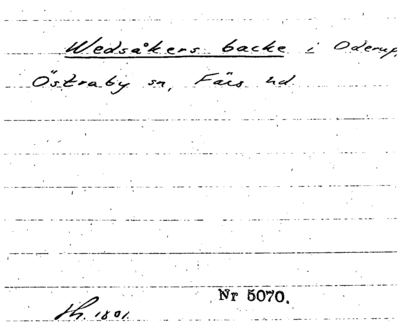 Wedsåkers backe i Oderup,
Östraby sn, Färs hd
Nr 5070.
1801.